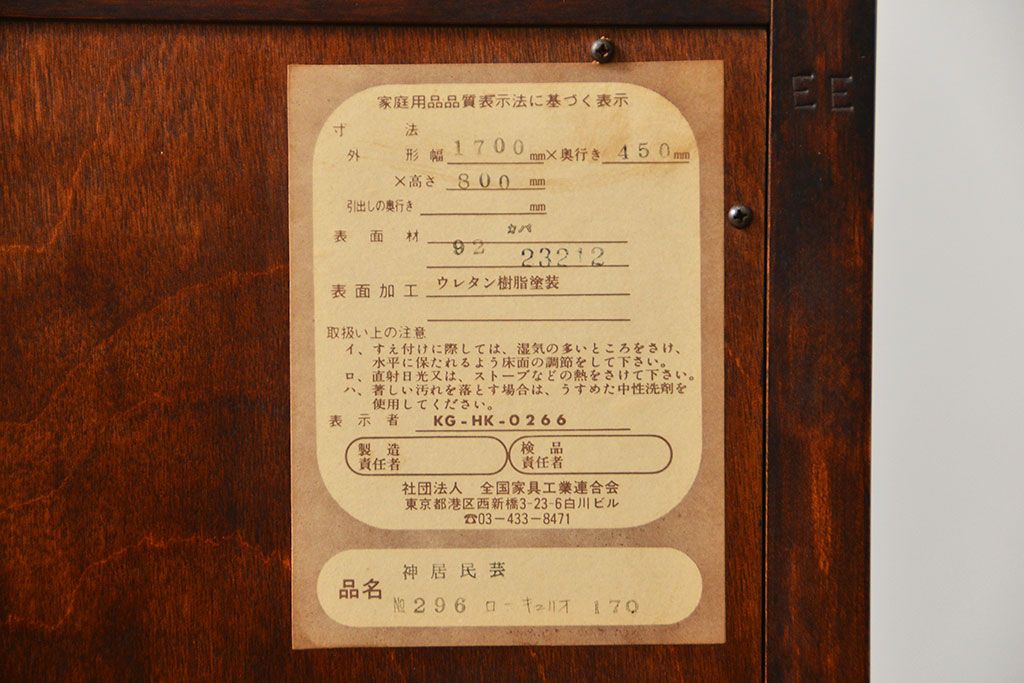 家庭用品品質表示法に基づく表示
寸法
外形 幅 1700 mm×奥行き 450 mm
×高さ 800 mm
引出しの奥行き mm
表面材 カバ
92 23212
表面加工 ウレタン樹脂塗装
取扱い上の注意
イ、すえ付けに際しては、湿気の多いところをさけ、
水平に保たれるよう床面の調節をして下さい。
ロ、直射日光又は、ストーブなどの熱をさけて下さい。
ハ、著しい汚れを落とす場合は、うすめた中性洗剤を
使用してください。
表示者 KG-HK-0266
製造 検品
責任者 責任者
社団法人 全国家具工業連合会
東京都港区西新橋3-23-6白川ビル
☎03-433-8471
神居民芸
品名
№296 ローキュリオ 170
EE